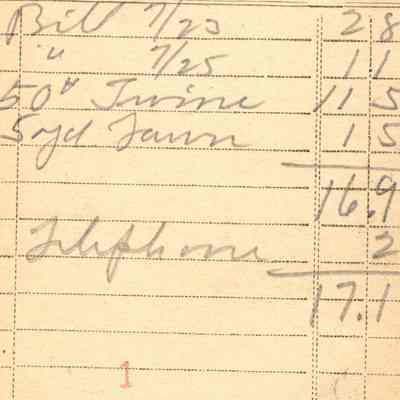 Bill 7/23 2 8
" 7/25 1 1
50# Twine 11 5
5 yd Lawn 1 5
16.9
Telephone 2
17.1
1